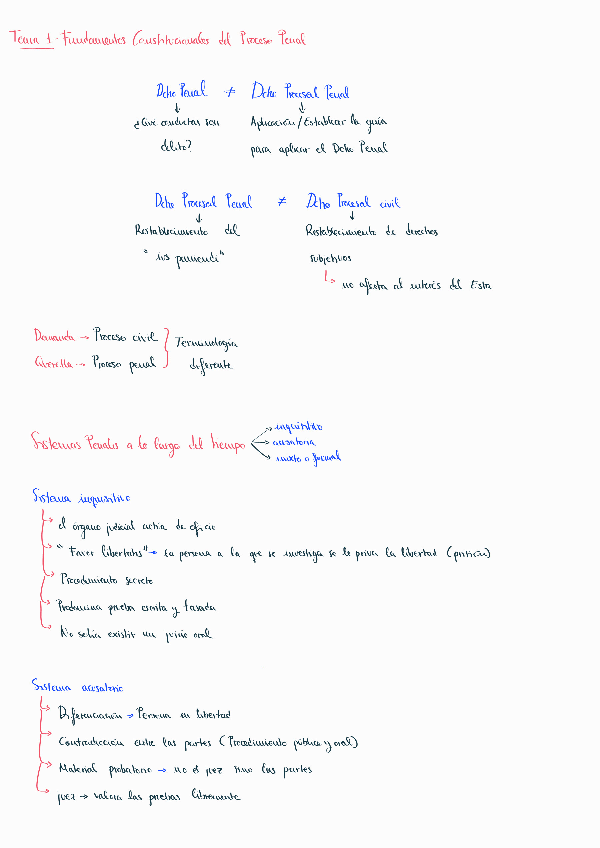 Tema 1. Fundamentos Constitucionales del Proceso Penal
Dcho Penal ≠ Dcho Procesal Penal
¿Qué conductas son Aplicación/Establecer la guía
delito? para aplicar el Dcho Penal
Dcho Procesal Penal ≠ Dcho Procesal civil
Restablecimiento del Restablecimiento de derechos
"ius puniendi" subjetivos
no afecta al interés del Esta
Demanda → Proceso civil
Terminología
Querella → Proceso penal
diferente
inquisitivo
Sistemas Penales a lo largo del tiempo
acusatorio
mixto o formal
Sistema inquisitivo
el órgano judicial actúa de oficio
"Favor libertatis" → La persona a la que se investiga se le priva la libertad (prisión)
Procedimiento secreto
Predomina prueba escrita y tasada
No solía existir un juicio oral
Sistema acusatorio
Diferenciación → Persona en libertad
Contradicción entre las partes (Procedimiento público y oral)
Material probatorio → no el juez sino las partes
juez → valora las pruebas libremente